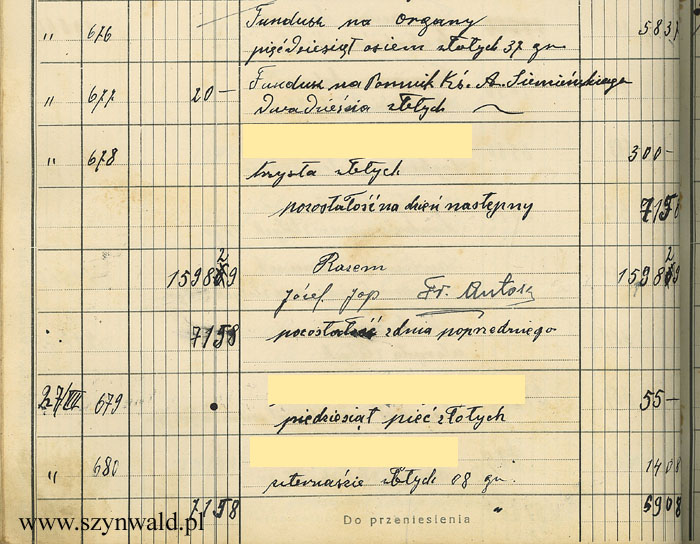 " 676 Fundusz na organy 5837
pięćdziesiąt osiem złotych 37 gr
" 677 20 — Fundusz na Pomnik Ks. A. Siemieńskiego
dwadzieścia złotych
" 678 300 —
trzysta złotych
pozostałość na dzień następny 7158
Razem
159829 159829
Józef Jop Fr. Antosz
7158 pozostałość z dnia poprzedniego
27/III 679 55 —
piedziesiąt pięć złotych
" 680 1408
czternaście złotych 08 gr.
7158 Do przeniesienia " 6908
www.szynwald.pl